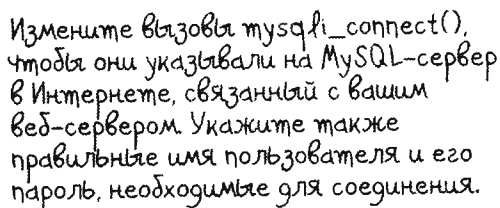 Измените вызовы mysqli_connect(),
чтобы они указывали на MySQL-сервер
в Интернете, связанный с вашим
веб-сервером. Укажите также
правильные имя пользователя и его
пароль, необходимые для соединения.